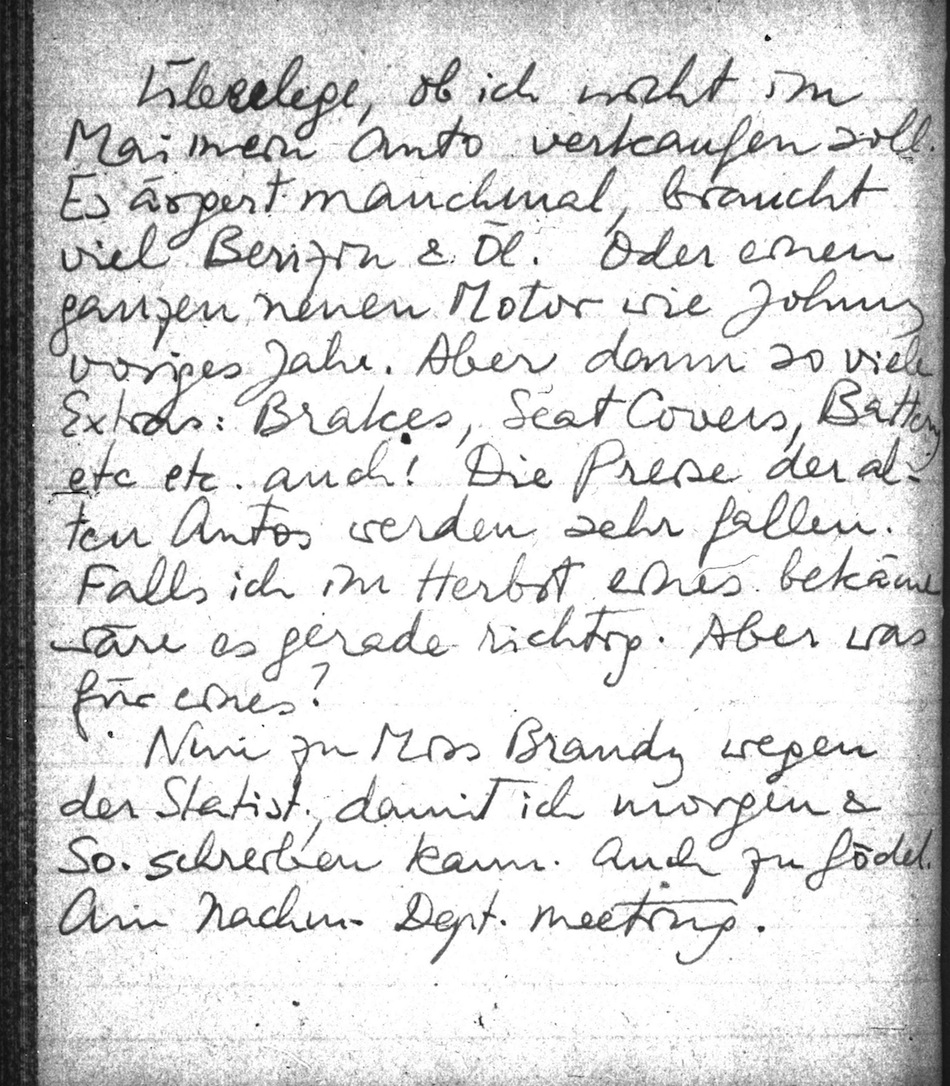 Überlege, ob ich nicht im
Mai mein Auto verkaufen soll.
Es ärgert manchmal, braucht
viel Benzin & Öl. Oder einen
ganzen neuen Motor wie Johnny
voriges Jahr. Aber dann so viele
Extras: Brakes, Seat Covers, Battery
etc etc. auch! Die Preise der al-
ten Autos werden sehr fallen.
Falls ich im Herbst eines bekäme
wäre es gerade richtig. Aber was
für eines?
Nun zu Miss Brandy wegen
der Statist., damit ich morgen &
So. schreiben kann. Auch zu Gödel.
Am Nachm. Dept. meeting.